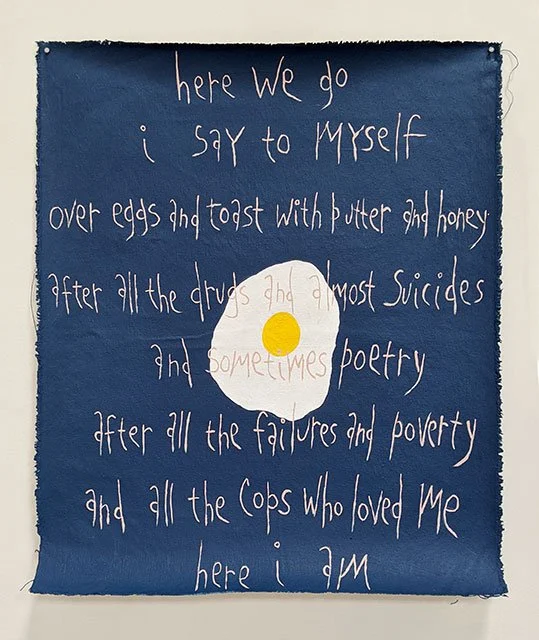 here we go
i say to myself
over eggs and toast with butter and honey
after all the drugs and almost suicides
and sometimes poetry
after all the failures and poverty
and all the cops who loved me
here i am